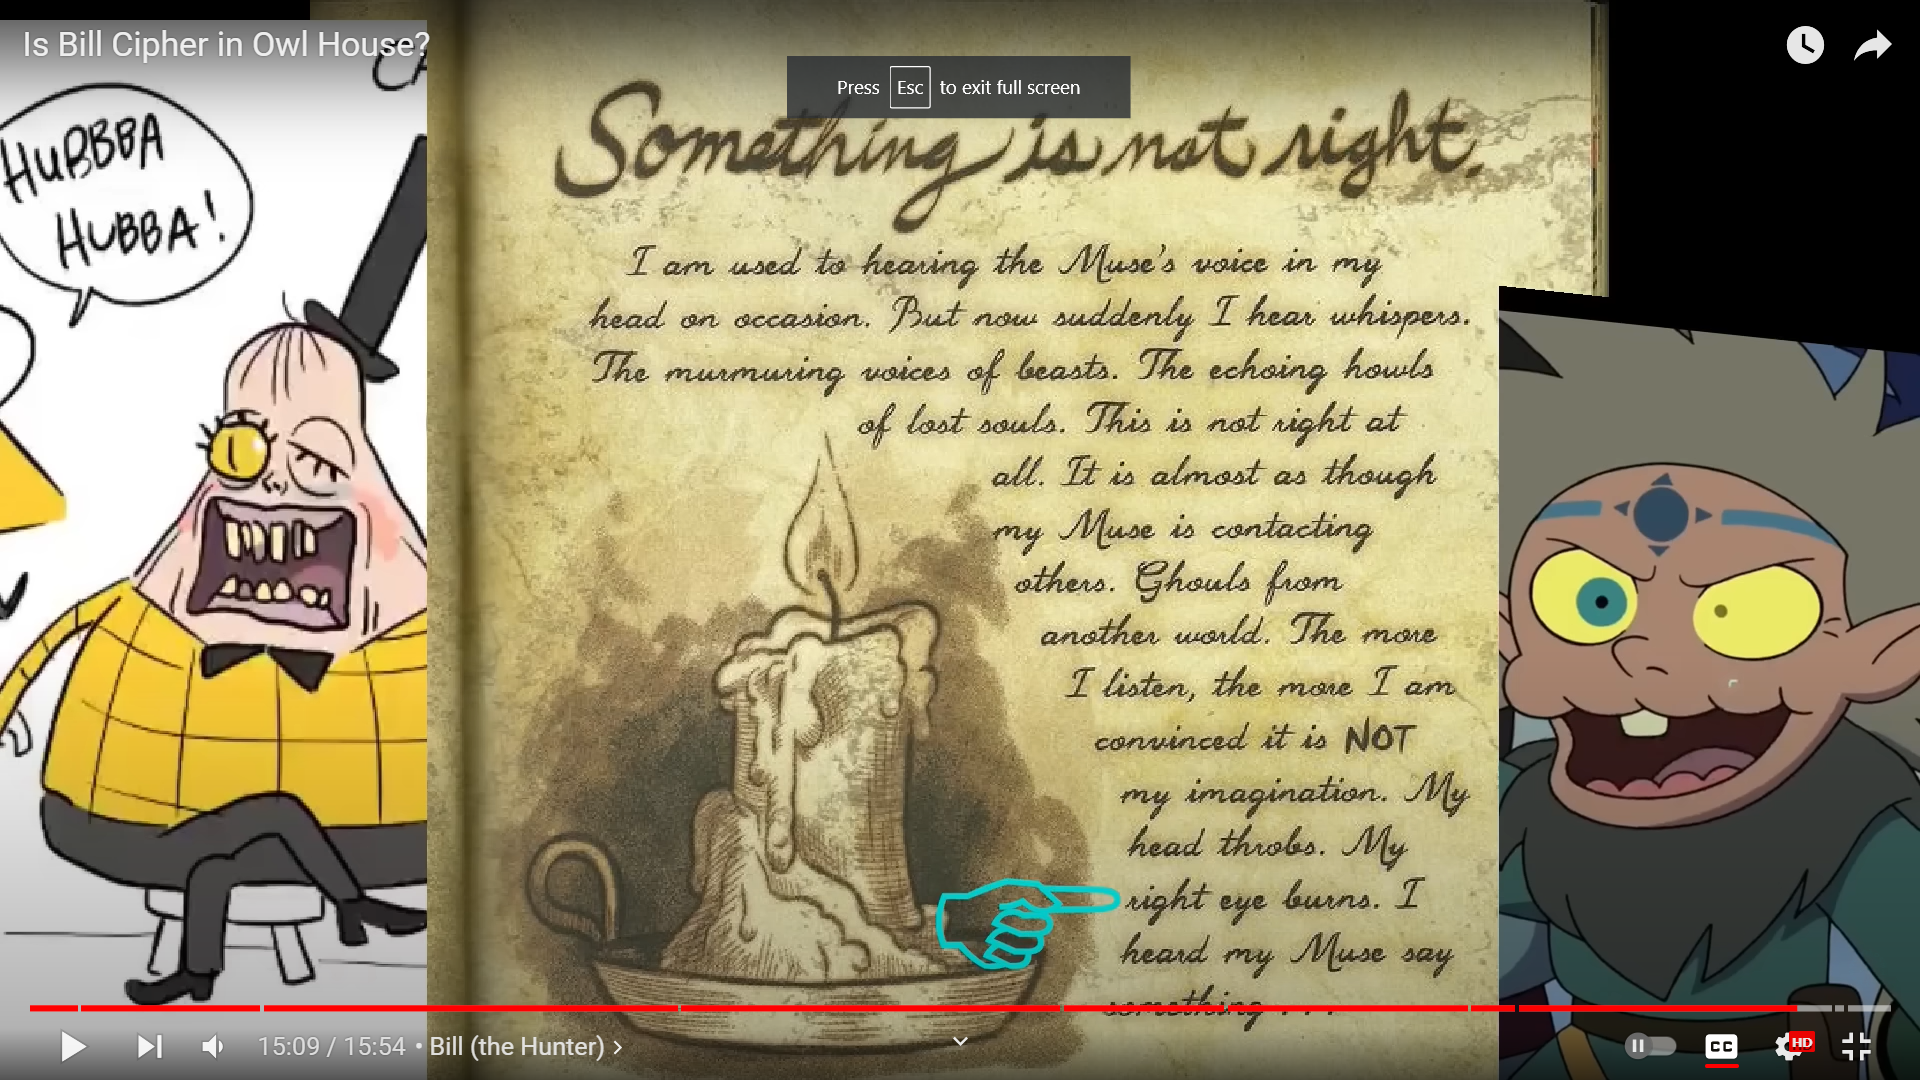 Is Bill Cipher in Owl House?
Press Esc to exit full screen
HUBBBA
HUBBA!
Something is not right.
I am used to hearing the Muse's voice in my
head on occasion. But now suddenly I hear whispers.
The murmuring voices of beasts. The echoing howls
of lost souls. This is not right at
all. It is almost as though
my Muse is contacting
others. Ghouls from
another world. The more
I listen, the more I am
convinced it is NOT
my imagination. My
head throbs. My
right eye burns. I
heard my Muse say
something . . .
15:09 / 15:54 • Bill (the Hunter) >
CC
HD